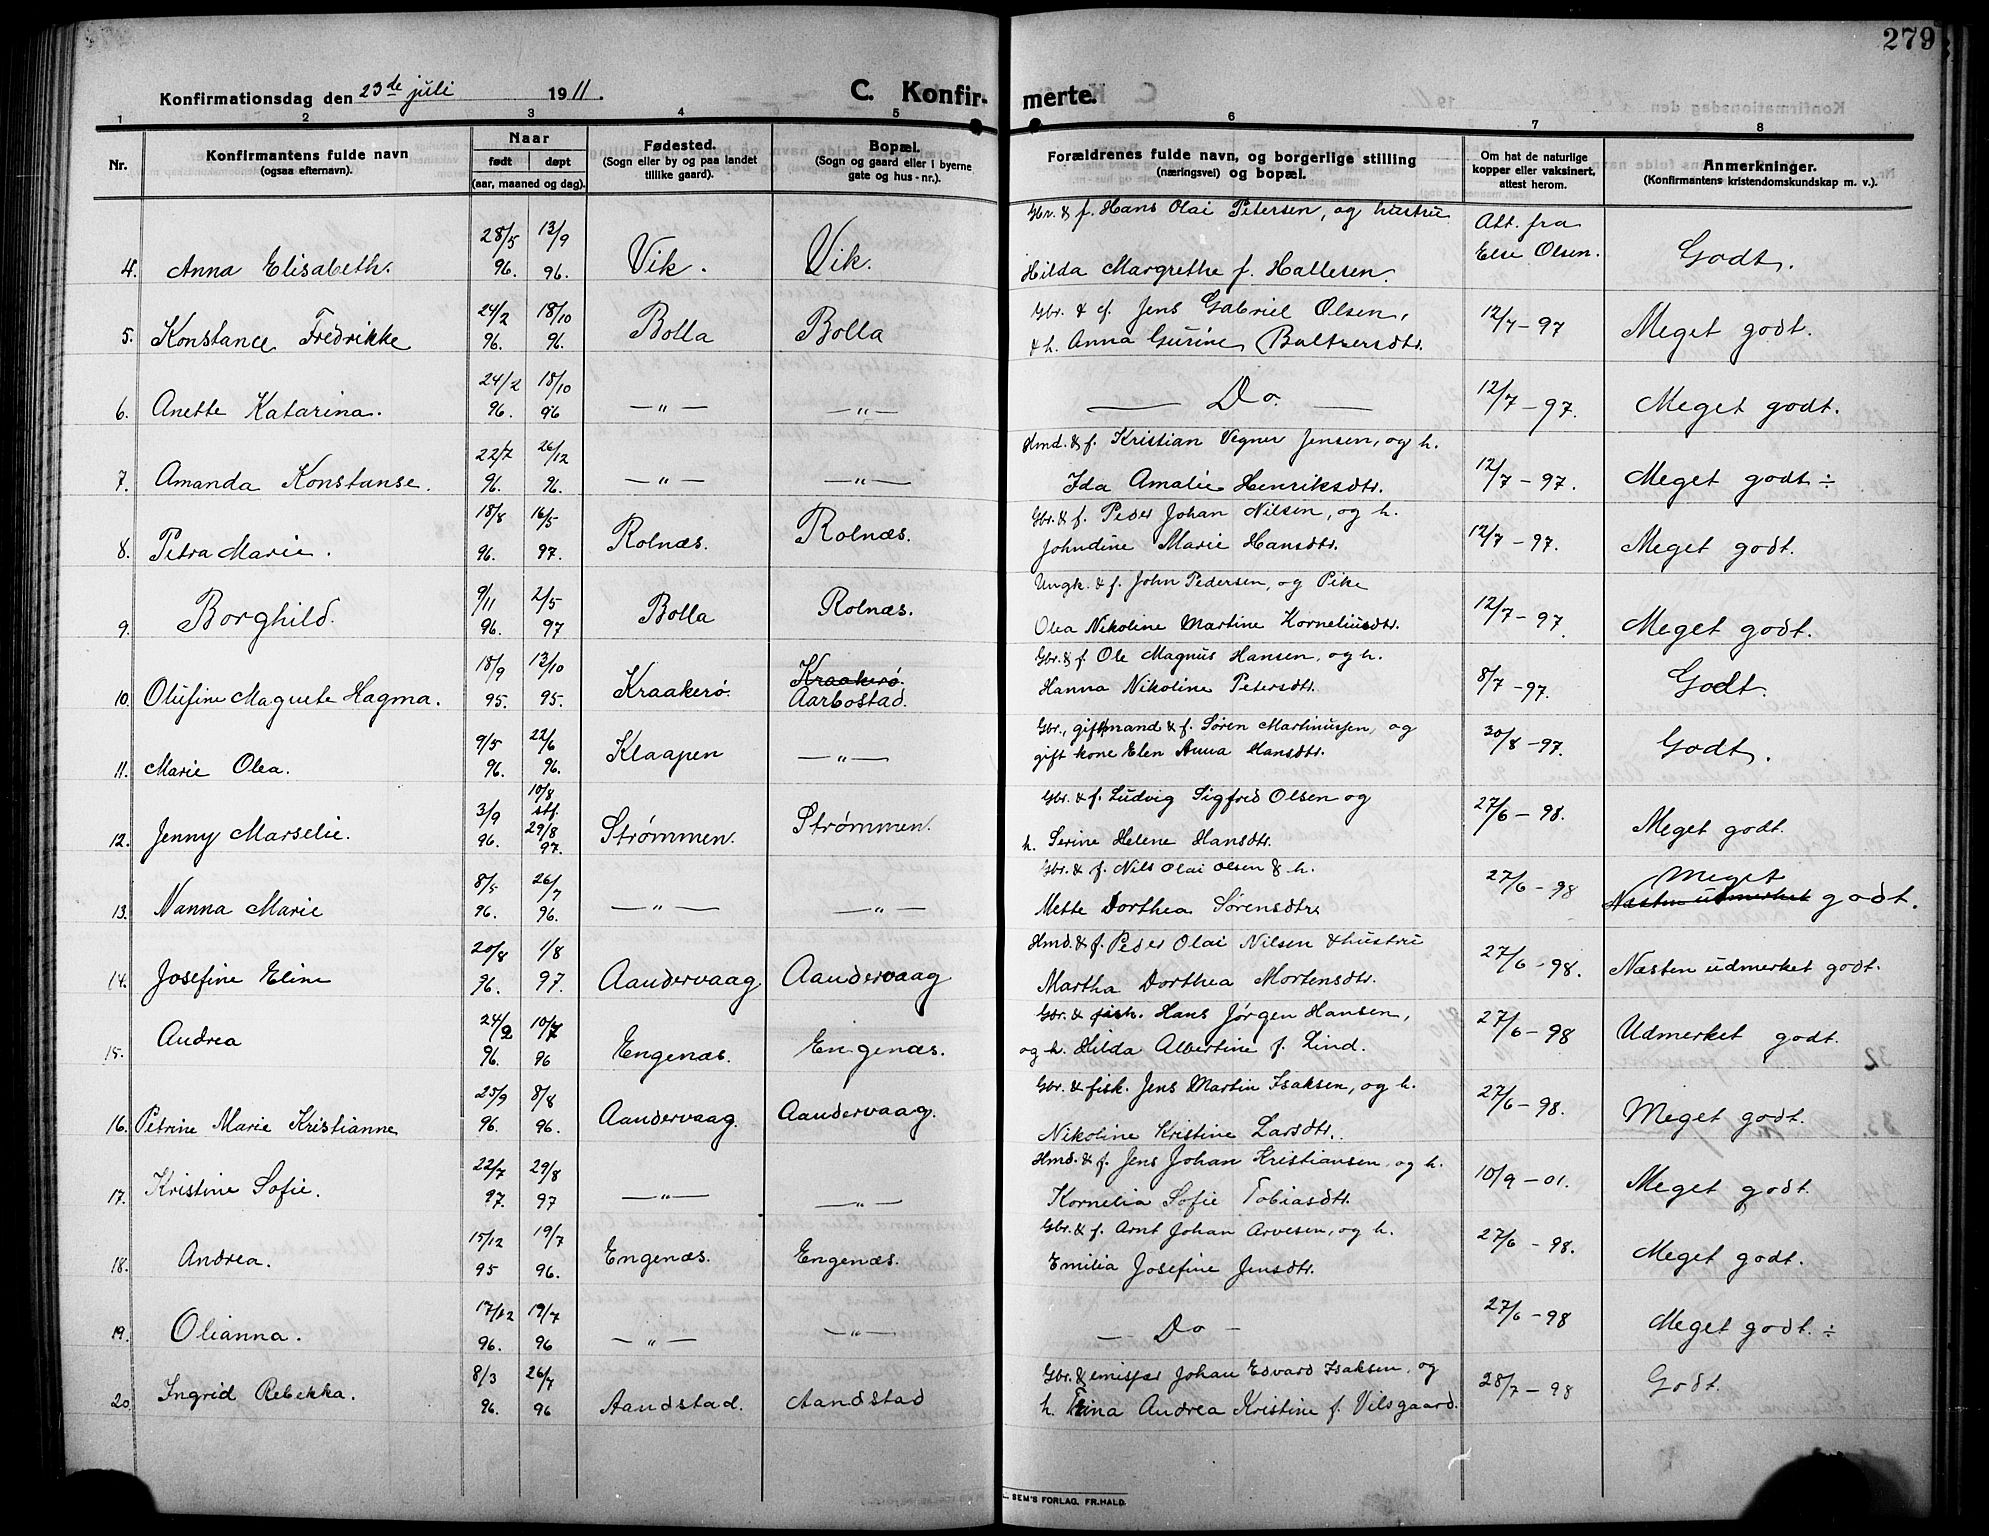 279
Konfirmationsdag den 23de juli 1911. C. Konfirmerte.
1 2 3 4 5 6 7 8
Nr. Konfirmantens fulde navn (ogsaa efternavn). Naar født døpt (aar, maaned og dag). Fødested. (Sogn eller by og paa landet tillike gaard). Bopæl. (Sogn og gaard eller i byerne gate og hus-nr.). Forældrenes fulde navn, og borgerlige stilling (næringsvei) og bopæl. Om hat de naturlige kopper eller vaksinert, attest herom. Anmerkninger. (Konfirmantens kristendomskundskap m. v.).
4. Anna Elisabeth. 28/5 96. 13/9 96. Vik. Vik. Gbr. & f. Hans Olai Petersen, og hustru Hilda Margrethe f. Hallesen. Att. fra Else Olsen. Godt.
5. Konstance Fredrikke 24/2 96. 18/10 96. Bolla Bolla Gbr. & f. Jens Gabriel Olsen, & h. Anna Gurine Baltsersdtr. 12/7-97 Meget godt.
6. Anette Katarina. 24/2 96. 18/10 96 —"— —"— — Do. — 12/7-97. Meget godt.
7. Amanda Konstanse. 22/7 96. 26/12 96. —"— —"— Hmd. & f. Kristian Vegner Jensen, og h. Ida Amalie Henriksdtr. 12/7-97. Meget godt ÷
8. Petra Marie. 18/8 96. 16/5 97. Rolnæs. Rolnæs. Gbr. & f. Peder Johan Nilsen, og h. Johndine Marie Hansdtr. 12/7-97. Meget godt.
9. Borghild. 9/11 96. 2/5 97 Bolla Rolnæs. Ungk. & f. John Pedersen, og Pike Olea Nikoline Martine Korneliusdtr. 12/7-97. Meget godt.
10. Olufine Magnete Hagma. 18/9 95. 13/10 95. Kraakerø. Kraakerø. Aarbostad. Gbr. & f. Ole Magnus Hansen, og h. Hanna Nikoline Petersdtr. 8/7-97. Godt.
11. Marie Olea. 9/5 96. 22/6 96. Klaapen —"— Gbr., giftmand & f. Søren Martinussen, og gift kone Elen Anna Hansdtr. 30/8-97. Godt.
12. Jenny Marselie. 3/9 96. 10/8 stf. 29/8 97. Strømmen. Strømmen. Gbr. & f. Ludvig Sigfred Olsen og h. Serine Helene Hansdtr. 27/6-98. Meget godt.
13. Nanna Marie 8/5 96. 26/7 96. —"— —"— Gbr. & f. Nils Olai Olsen & h. Mette Dorthea Sørensdtr 27/6-98 Næsten udmerket Meget godt.
14. Josefine Eline 20/8 96. 1/8 97. Aandervaag Aandervaag Hmd. & f. Peder Olai Nilsen & hustru Martha Dorthea Mortensdtr. 27/6-98. Næsten udmerket godt.
15. Andrea 24/2 96. 10/7 96 Engenæs. Engenæs. Gbr. & fisk. Hans Jørgen Hansen, og h. Hilda Albertine f. Lind. 27/6-98 Udmerket godt.
16. Petrine Marie Kristianne 25/9 96. 8/8 96. Aandervaag. Aandervaag. Gbr. & fisk. Jens Martin Isaksen, og h. Nikoline Kristine Larsdtr. 27/6-98. Meget godt.
17. Kristine Sofie. 22/7 97. 29/8 97 —"— —"— Hmd. & f. Jens Johan Kristiansen, og h. Kornelia Sofie Tobiasdtr. 10/9-01. Meget godt.
18. Andrea. 15/12 95 19/7 96. Engenæs. Engenæs. Gbr. & f. Arnt Johan Arvesen, og h. Emilia Josefine Jensdtr. 27/6-98. Meget godt.
19. Olianna. 17/12 96. 19/7 96 —"— —"— — Do — 27/6-98 Meget godt. ÷
20. Ingrid Rebekka. 8/3 96. 26/7 96 Aandstad. Aandstad Gbr. & emisær Johan Edvard Isaksen, og h. Trina Andrea Kristine f. Vilsgaard. 28/7-98 Godt.
SEM'S FORLAG, FR.HALD.